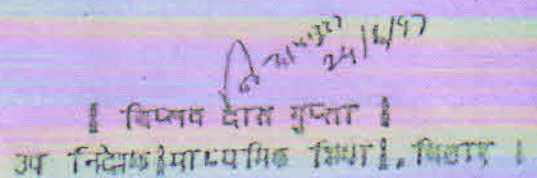 24/6/97
॥ विप्लव दास गुप्ता ॥
उप निदेशक॥माध्यमिक शिक्षा॥, बिहार ।